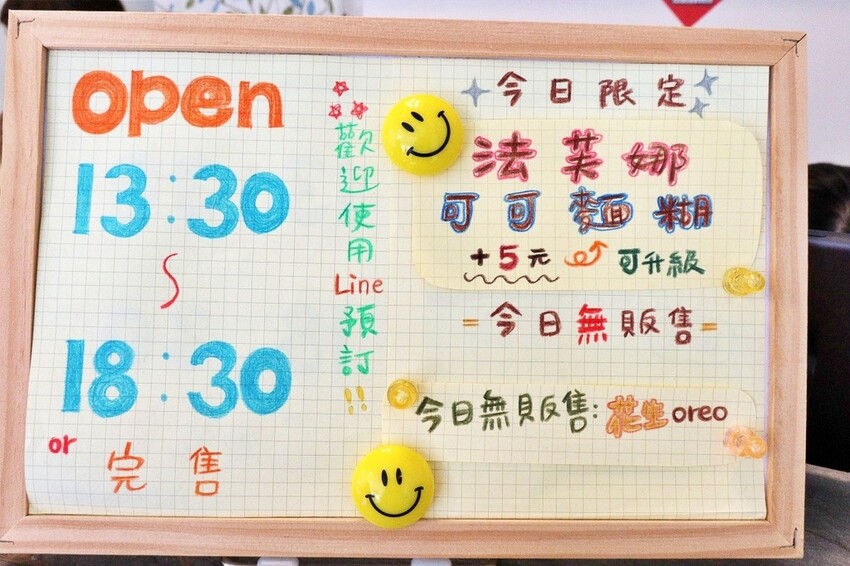 open
13:30
~
18:30
or 完售
歡迎使用Line預訂!!
今日限定
法芙娜
可可麵糊
+5元 可升級
=今日無販售=
今日無販售:花生 oreo